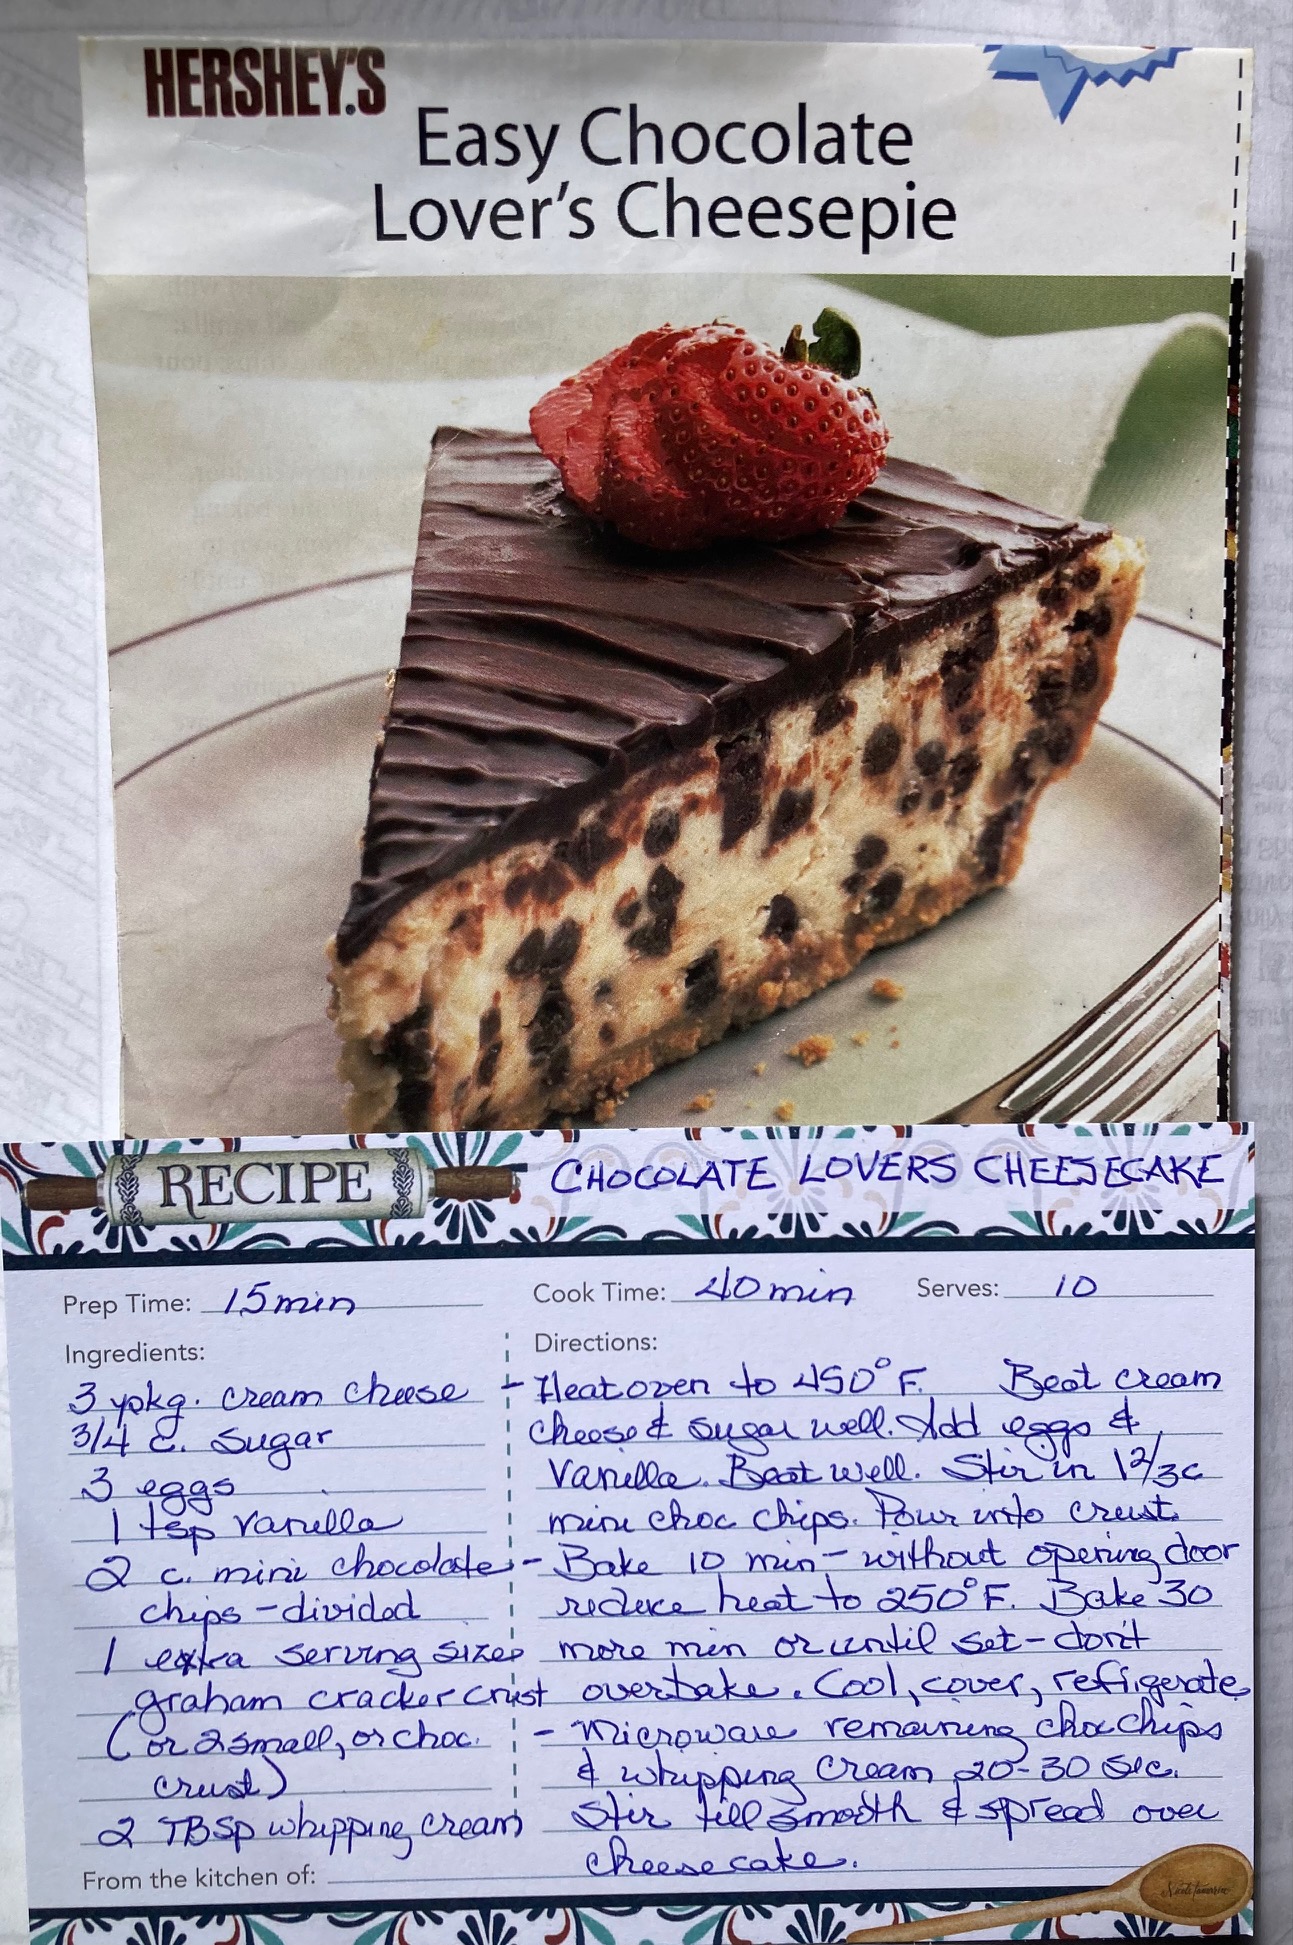 HERSHEY'S
Easy Chocolate
Lover's Cheesepie
RECIPE
CHOCOLATE LOVERS CHEESECAKE
Prep Time: 15 min
Cook Time: 40 min
Serves: 10
Ingredients:
3 pkg. cream cheese
3/4 c. sugar
3 eggs
1 tsp vanilla
2 c. mini chocolate
chips - divided
1 extra serving size
graham cracker crust
(or 2 small, or choc.
crust)
2 TBSP whipping cream
Directions:
- Heat oven to 450°F. Beat cream
cheese & sugar well. Add eggs &
Vanilla. Beat well. Stir in 1 2/3 c
mini choc chips. Pour into crust.
- Bake 10 min - without opening door
reduce heat to 250°F. Bake 30
more min or until set - don't
overbake. Cool, cover, reffigerate
- Microwave remaining choc chips
& whipping cream 20-30 sec.
Stir till smooth & spread over
cheesecake.
From the kitchen of: